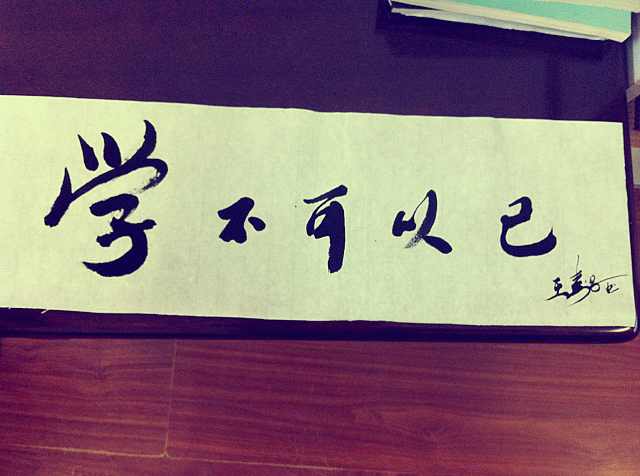 学不可以已